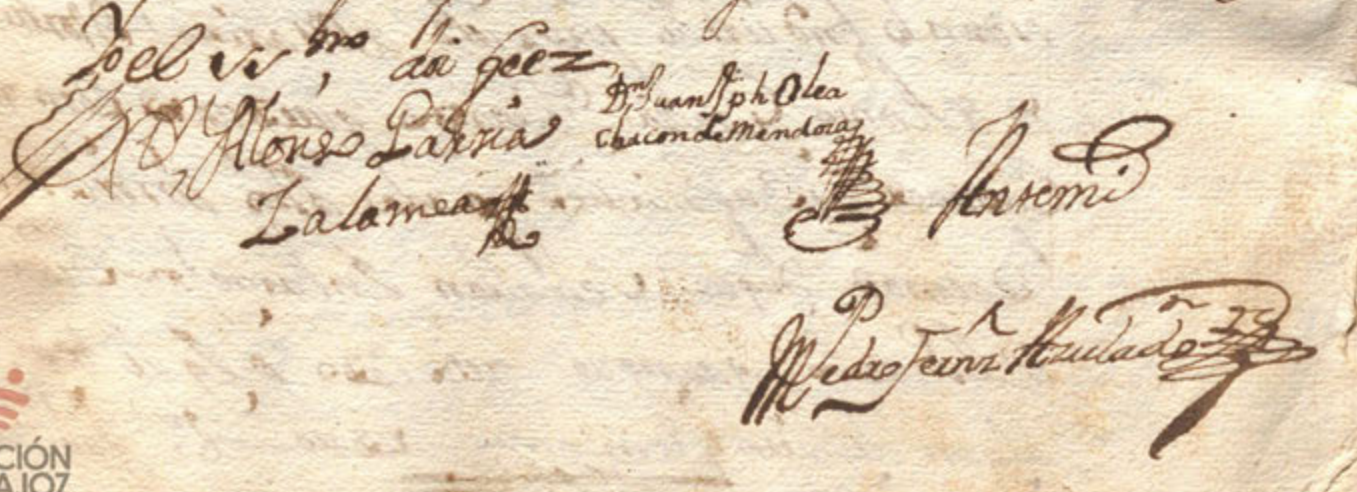 Yo el ss.no doi fee
Dn. Alonso Parria
Zalamea
Dn. Juan Jph Olea
Chacon de Mendoza
Ante mi
Pedro Fernz
CIÓN
AJOZ